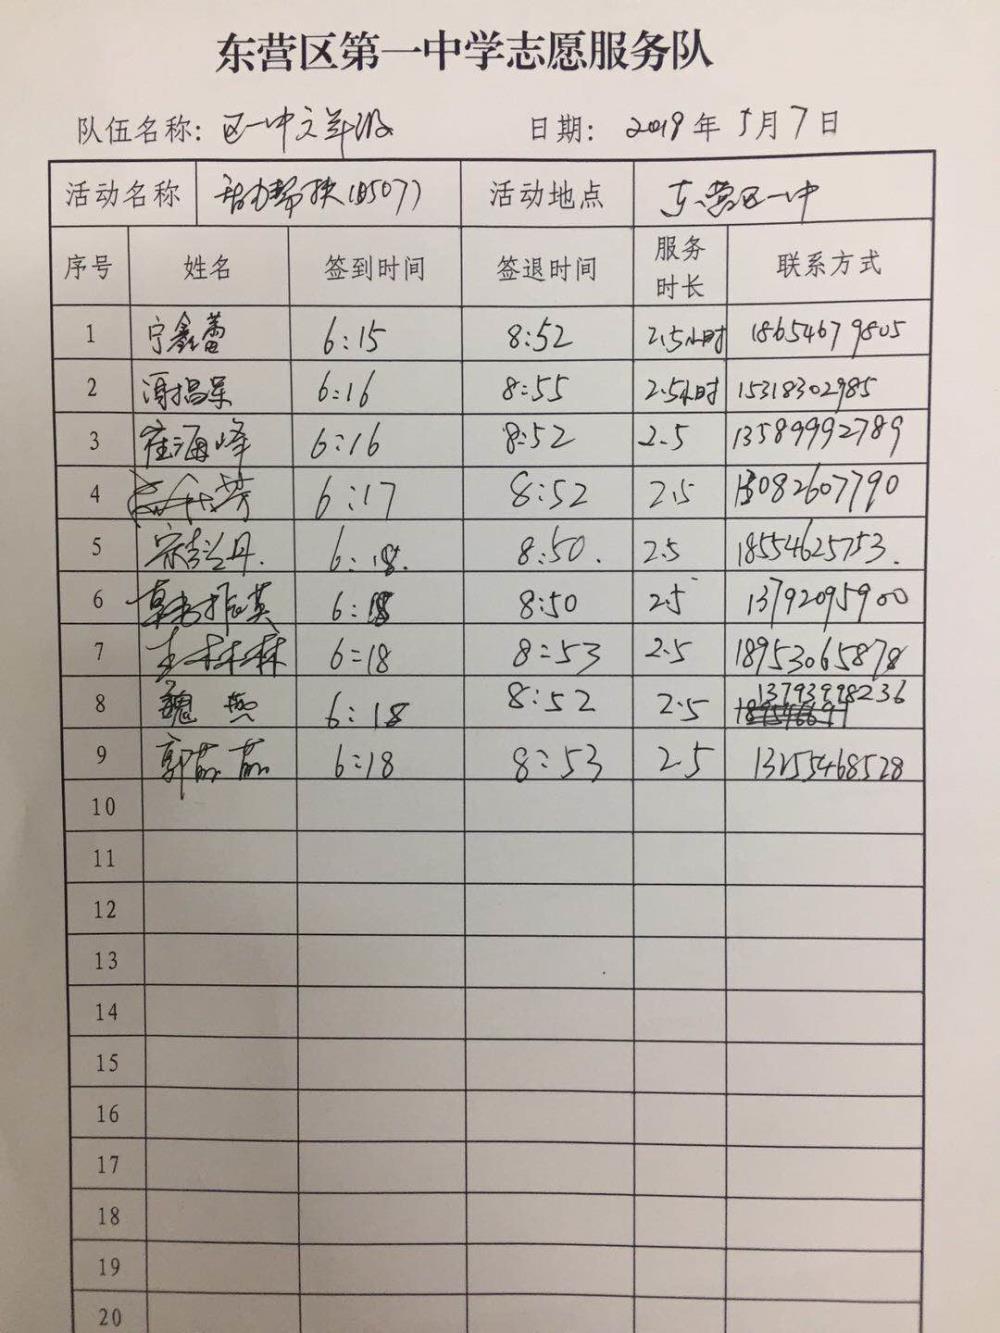 东营区第一中学志愿服务队
队伍名称: 区一中六年级 日期: 2019年5月7日
活动名称 帮扶(0507) 活动地点 东营区一中
序号 姓名 签到时间 签退时间 服务时长 联系方式
1 宁鑫蕾 6:15 8:52 2.5小时 18654679805
2 6:16 8:55 2.5小时 15318302985
3 崔海峰 6:16 8:52 2.5 13589992789
4 芳 6:17 8:52 2.5 13082607790
5 宋吉兰丹. 6:18. 8:50. 2.5 18554625753.
6 韩振英 6:18 8:50 2.5 13792095900
7 王林林 6:18 8:53 2.5 18953065878
8 魏燕 6:18 8:52 2.5 13793998236
9 郭茹茹 6:18 8:53 2.5 13255468528
10
11
12
13
14
15
16
17
18
19
20